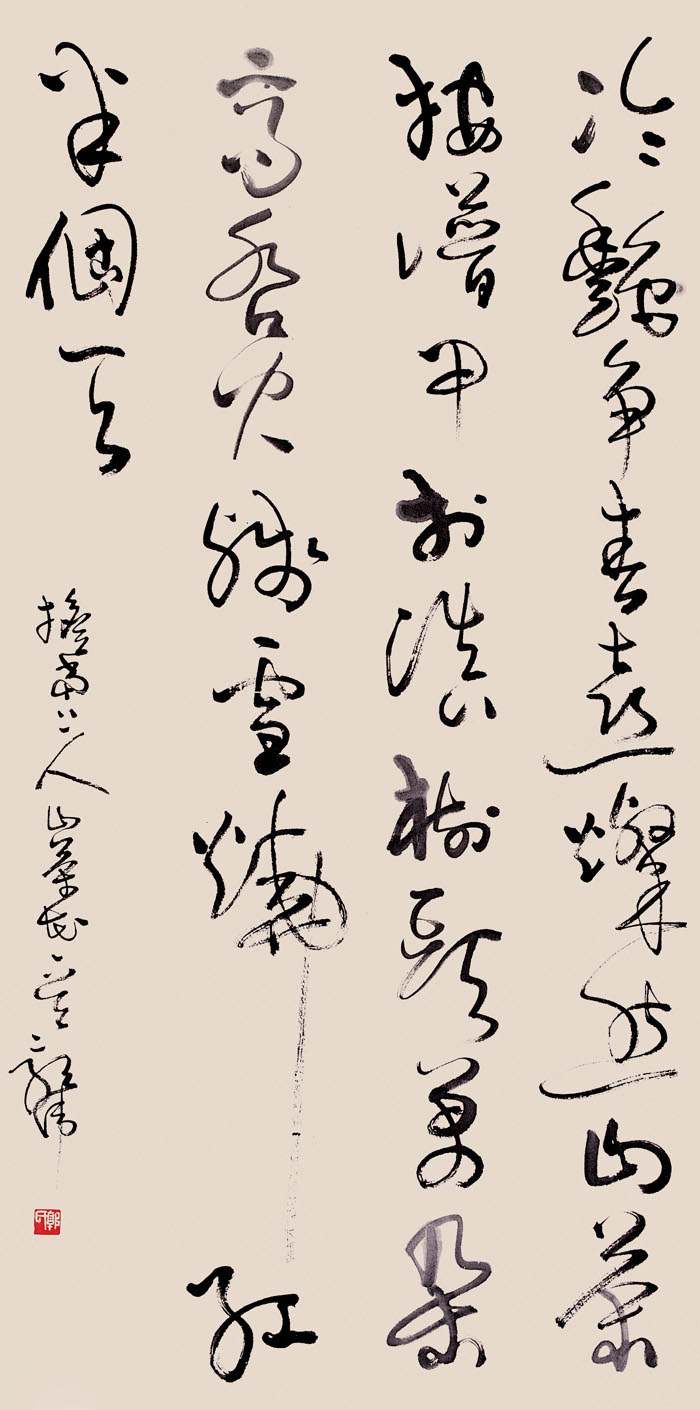 冷艷争春喜燦然山茶
按譜甲於滇樹頭萬朵
齊吞火殘雪燒紅
半個天
擔當上人山茶花